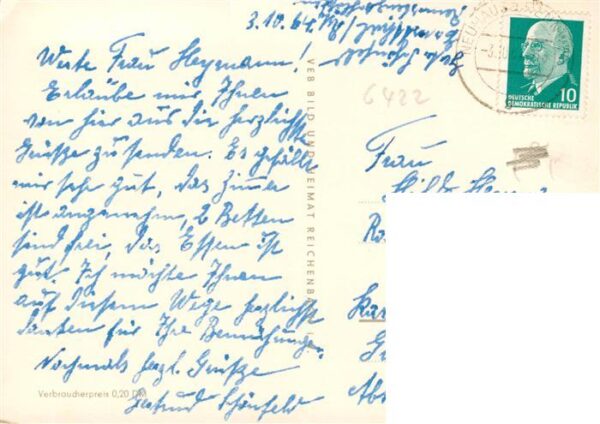 3.10.64.
Werte Frau Heymann!
Erlaube mir Ihnen
von hier aus die herzlichste
Grüße zu senden. Es gefällt
mir sehr gut, das Zimer
ist angenehm, 2 Betten
sind frei, das Essen ist
gut. Ich möchte Ihnen
auf diesem Wege herzlichst
danken für Ihre Bemühungen.
Nochmals herzl. Grüße
Gertrud Schönfeld
Verbraucherpreis 0,20 DM
VEB BILD UND HEIMAT REICHENB
6422
DEUTSCHE
DEMOKRATISCHE REPUBLIK
10
Frau